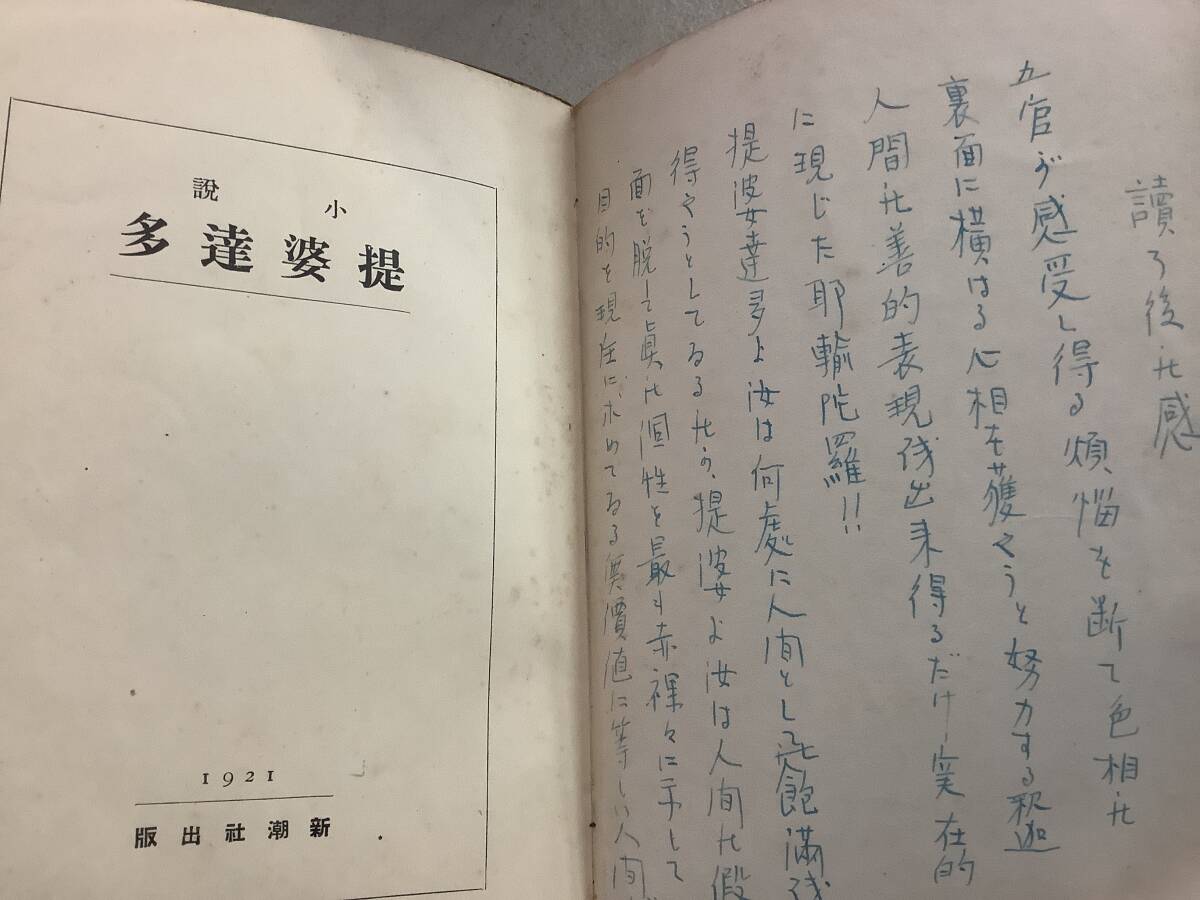 小説
提婆達多
1921
新潮社出版
讀了後の感
五官が感受し得る煩悩を断て色相の
裏面に横はる心相を獲やうと努力する釈迦
人間の善的表現後出来得るだけ実在的
に現じた耶輸陀羅!!
提婆達多よ汝は何處に人間としての飽満
得やうとしてゐるのか、提婆よ汝は人間の假
面を脱して眞の個性を最も赤裸々に示して
目的を現在に、求めてゐる無價値に等しい人間